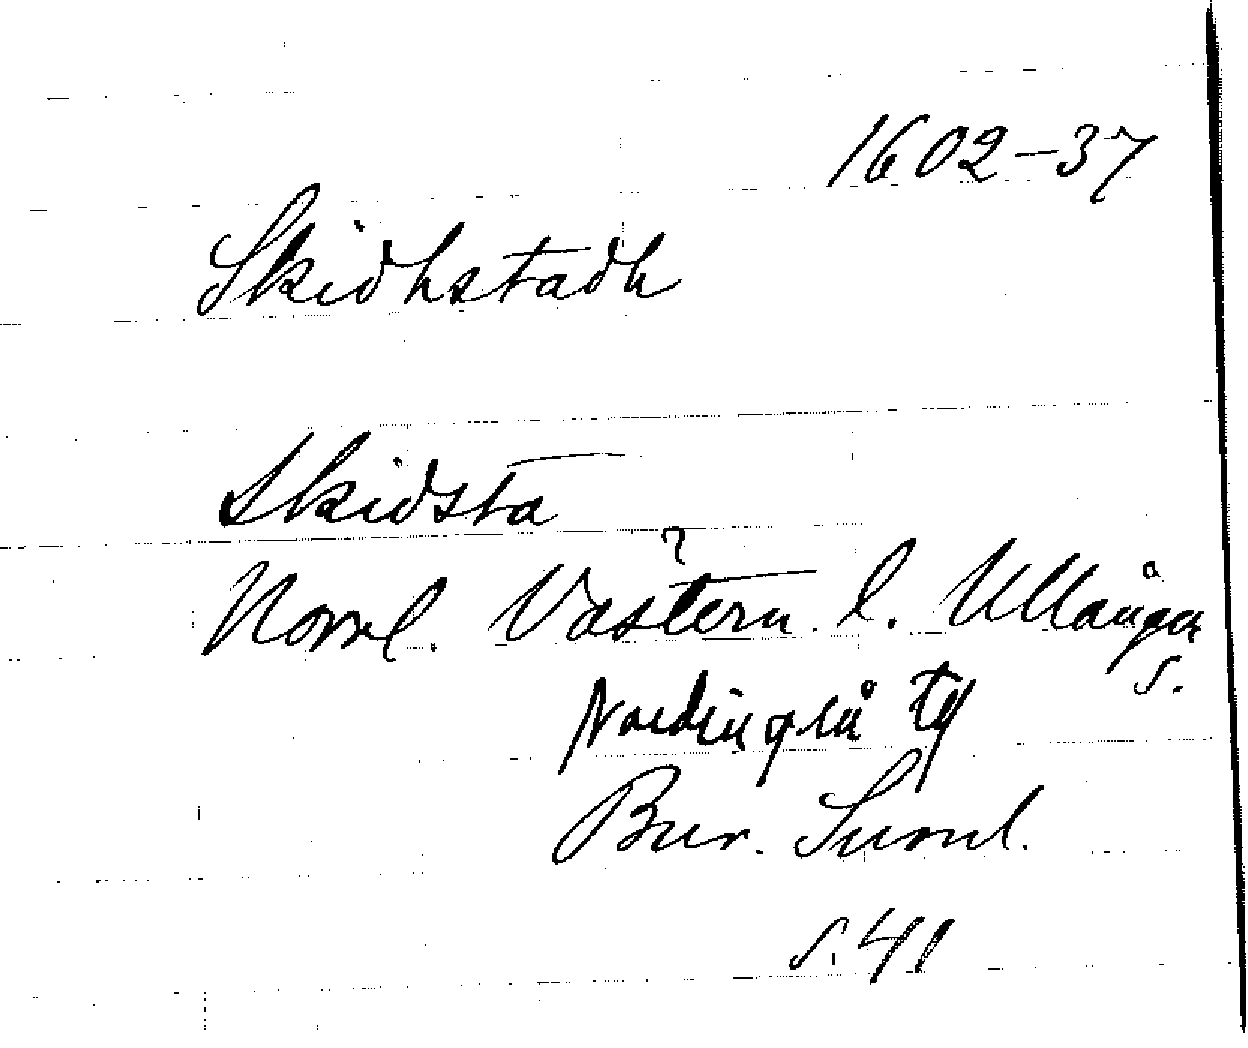 1602-37
Skidhstadh
Skidsta
?
Norrl. Västern. l. Ullånger
s.
Nordingrå tg
Bur. Suml.
s. 41